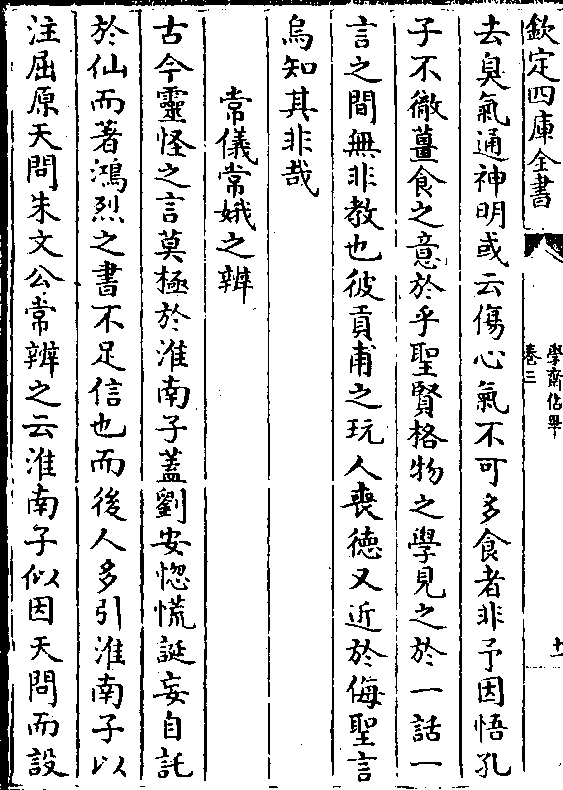 欽定四庫全書
學齋佔畢
卷三
十一
去臭氣通神明或云傷心氣不可多食者非予因悟孔
子不徹薑食之意於乎聖賢格物之學見之於一話一
言之間無非教也彼貢甫之玩人喪徳又近於侮聖言
烏知其非哉
常儀常娥之辨
古今靈怪之言莫極於淮南子蓋劉安惚慌誕妄自託
於仙而著鴻烈之書不足信也而後人多引淮南子以
注屈原天問朱文公常辨之云淮南子似因天問而設